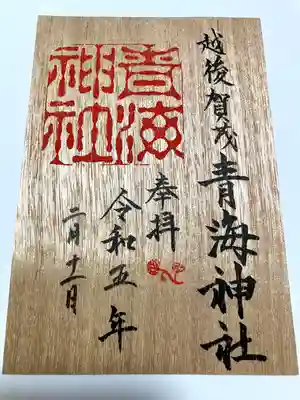 越後賀茂
青海神社
奉拝
青海神社
令和五年
二月十一日